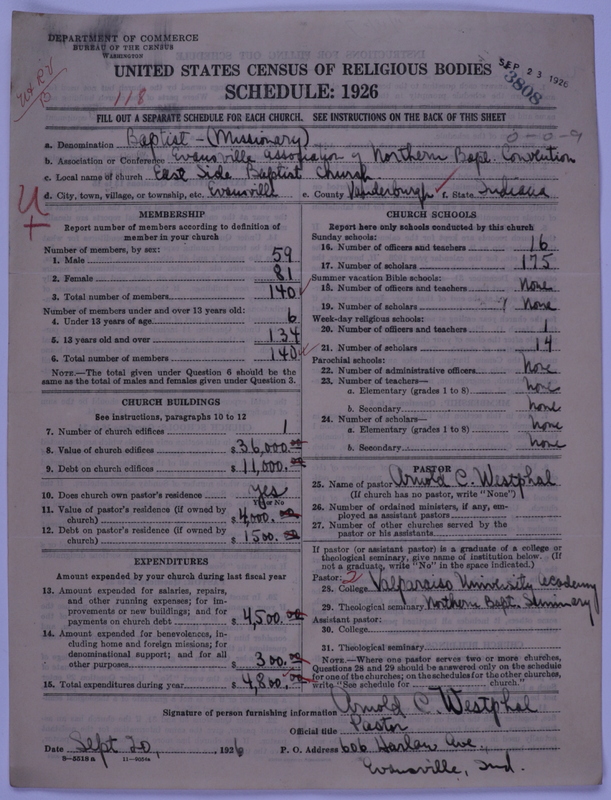 DEPARTMENT OF COMMERCE
BUREAU OF THE CENSUS
WASHINGTON
SEP 23 1926
3808
UNITED STATES CENSUS OF RELIGIOUS BODIES
SCHEDULE: 1926
118
FILL OUT A SEPARATE SCHEDULE FOR EACH CHURCH. SEE INSTRUCTIONS ON THE BACK OF THIS SHEET
0-0-9
a. Denomination Baptist-(Missionary)
b. Association or Conference Evansville Association of Northern Bapt. Convention
c. Local name of church East Side Baptist Church.
d. City, town, village, or township, etc. Evansville e. County Vanderburgh f. State Indiana
MEMBERSHIP
Report number of members according to definition of
member in your church
Number of members, by sex:
1. Male 59
2. Female 81
3. Total number of members 140
Number of members under and over 13 years old:
4. Under 13 years of age 6
5. 13 years old and over 134
6. Total number of members 140
NOTE.—The total given under Question 6 should be the
same as the total of males and females given under Question 3.
CHURCH BUILDINGS
See instructions, paragraphs 10 to 12
7. Number of church edifices 1
8. Value of church edifices $36,000.00
9. Debt on church edifices $11,000.00
10. Does church own pastor's residence Yes
Yes or No
11. Value of pastor's residence (if owned by
church) $4,000.00
12. Debt on pastor's residence (if owned by
church) $1500.00
EXPENDITURES
Amount expended by your church during last fiscal year
13. Amount expended for salaries, repairs,
and other running expenses; for im-
provements or new buildings; and for
payments on church debt $4,500.00
14. Amount expended for benevolences, in-
cluding home and foreign missions; for
denominational support; and for all
other purposes $300.00
15. Total expenditures during year $4,800.00
CHURCH SCHOOLS
Report here only schools conducted by this church
Sunday schools:
16. Number of officers and teachers 16
17. Number of scholars 175
Summer vacation Bible schools:
18. Number of officers and teachers None
19. Number of scholars None
Week-day religious schools:
20. Number of officers and teachers 1
21. Number of scholars 14
Parochial schools:
22. Number of administrative officers None
23. Number of teachers—
a. Elementary (grades 1 to 8) None
b. Secondary None
24. Number of scholars—
a. Elementary (grades 1 to 8) None
b. Secondary None
PASTOR
25. Name of pastor Arnold C. Westphal
(If church has no pastor, write "None")
26. Number of ordained ministers, if any, em-
ployed as assistant pastors
27. Number of other churches served by the
pastor or his assistants
If pastor (or assistant pastor) is a graduate of a college or
theological seminary, give name of institution below. (If
not a graduate, write "No" in the space indicated.)
Pastor: 2
28. College Valparaiso University Academy
29. Theological seminary Northern Bapt. Seminary
Assistant pastor:
30. College
31. Theological seminary
NOTE.—Where one pastor serves two or more churches,
Questions 28 and 29 should be answered only on the schedule
for one of the churches; on the schedules for the other churches,
write "See schedule for church."
Signature of person furnishing information Arnold C. Westphal
Official title Pastor
Date Sept 20, , 1926 P. O. Address 606 Harlan Ave.,
Evansville, Ind.
8-5518 a 11-9054a